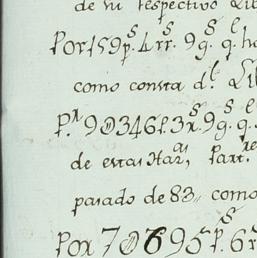 de su respectivo Lib
Por 159 p.s 4 rr.s 9 g.s q.e ha
como consta d.l Lib
P.r 90346 p.s 3 r.s 9 g.s q.e
de estas Har.as, Part.re
pasado de 83,, como
Por 70695 p.s 6 r